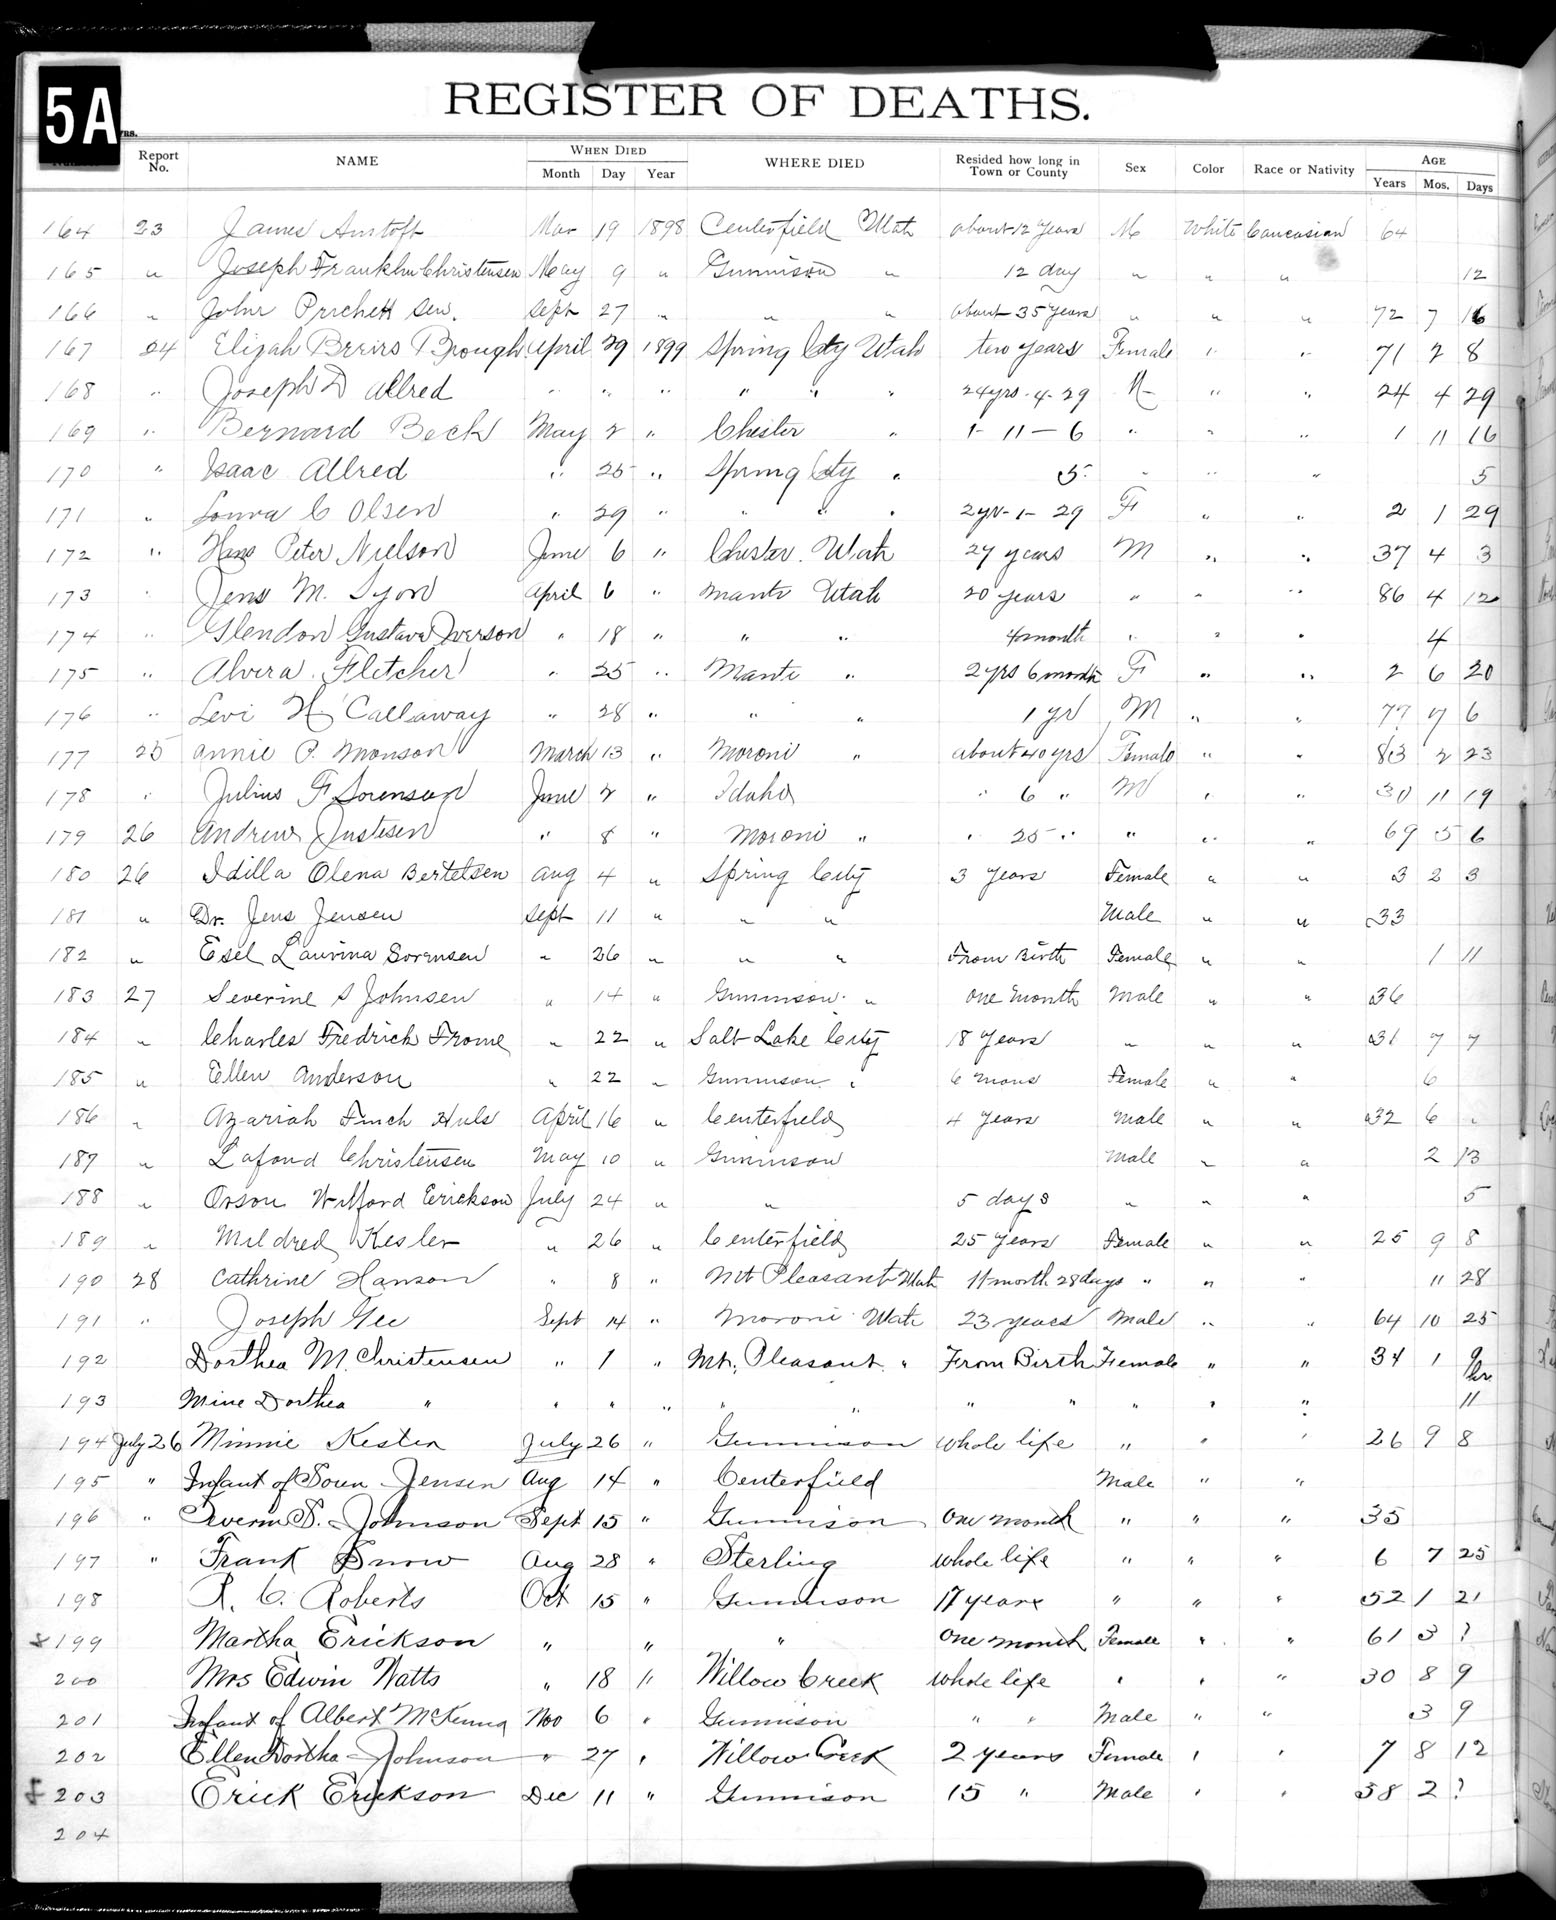 5A
REGISTER OF DEATHS.
Report No. NAME WHEN DIED Month Day Year WHERE DIED Resided how long in Town or County Sex Color Race or Nativity AGE Years Mos. Days
164 23 James Mar 19 1898 Centerfield Utah about 12 Years M White Caucasian 64
165 " Joseph Franklin Christensen May 9 " Gunnison " 12 day " " " 12
166 " John Prichett Sen. Sept 27 " " " about 35 years " " " 72 7 16
167 24 Elizah Brough April 29 1899 Spring City Utah two years Female " " 71 2 8
168 " Joseph D Allred " " " " " " 24 yrs. 4. 29 M " " 24 4 29
169 " Bernard Beck May 2 " Chester " 1- 11 - 6 " " " 1 11 16
170 " Isaac Allred " 25 " Spring City " 5 " " " 5
171 " C Olsen " 29 " " " " 2 yr - 1 - 29 F " " 2 1 29
172 " Hans Peter Nielson June 6 " Chester. Utah 27 years M " " 37 4 3
173 " Jens M. Lyon April 6 " Manti Utah 20 years " " " 86 4 12
174 " Glendon Gustave Iverson " 18 " " " 4 month " " " 4
175 " Alvera Fletcher " 25 " Manti " 2 yrs 6 month F " " 2 6 20
176 " Levi H Callaway " 28 " " " 1 yr M " " 77 7 6
177 25 Annie P. Monson March 13 " Moroni " about 40 yrs Female " " 83 2 23
178 " Julius F Sorenson June 2 " Idaho " 6 " M " " 30 11 19
179 26 Andrew Justesen " 8 " Moroni " " 25 " " " " 69 5 6
180 26 Idilla Olena Bertelsen Aug 4 " Spring City 3 Years Female " " 3 2 3
181 " Dr. Jens Jensen Sept 11 " " " Male " " 33
182 " Esel Laurina Sorensen " 26 " " " From Birth Female " " 1 11
183 27 Severine S Johnsen " 14 " Gunnison " one month Male " " 36
184 " Charles Fredrick Frome " 22 " Salt Lake City 18 Years " " " 31 7 7
185 " Ellen Anderson " 22 " Gunnison " 6 mons Female " " 6
186 " Azariah Finch Huls April 16 " Centerfield 4 Years Male " " 32 6 "
187 " Lafond Christensen May 10 " Gunnison Male " " 2 13
188 " Orson Wilford Erickson July 24 " " 5 days " " " 5
189 " Mildred Kesler " 26 " Centerfield 25 Years Female " " 25 9 8
190 28 Cathrine Hanson " 8 " Mt Pleasant Utah 11 month 28 days " " " 11 28
191 " Joseph Gee Sept 14 " Moroni Utah 23 years Male " " 64 10 25
192 Dorthea M. Christensen " 1 " Mt. Pleasant " From Birth Female " " 34 1 9
193 Mine Dorthea " " " " " " " " " " " 11
194 July 26 Minnie July 26 " Gunnison whole life " " " 26 9 8
195 " Infant of Soren Jensen Aug 14 " Centerfield Male " "
196 " Severin S. Johnson Sept 15 " Gunnison One month " " " 35
197 " Frank Snow Aug 28 " Sterling whole life " " " 6 7 25
198 R. C. Roberts Oct 15 " Gunnison 17 years " " " 52 1 21
199 Martha Erickson " " " One month Female " " 61 3 ?
200 Mrs Edwin Watts " 18 " Willow Creek whole life " " " 30 8 9
201 Infant of Albert McKenna Nov 6 " Gunnison " " Male " " 3 9
202 Ellen Dortha Johnson " 27 " Willow Creek 2 years Female " " 7 8 12
203 Erick Erickson Dec 11 " Gunnison 15 " Male " " 58 2 ?
204